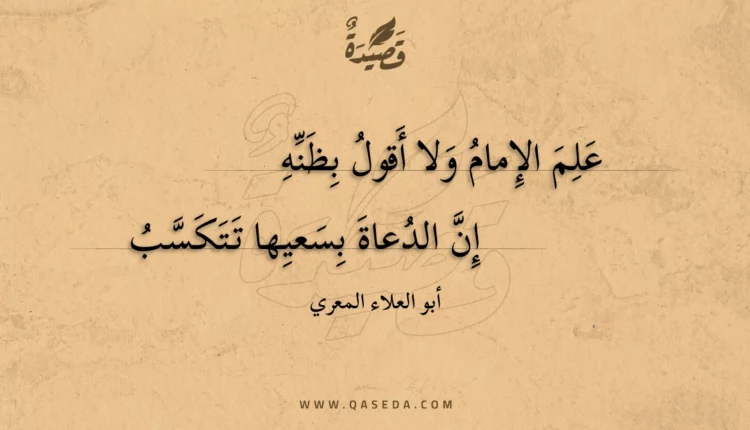 قَصِيدَةٌ
عَلِمَ الإِمامُ وَلا أَقولُ بِظَنِّهِ
إِنَّ الدُعاةَ بِسَعيِها تَتَكَسَّبُ
أبو العلاء المعري
WWW.QASEDA.COM